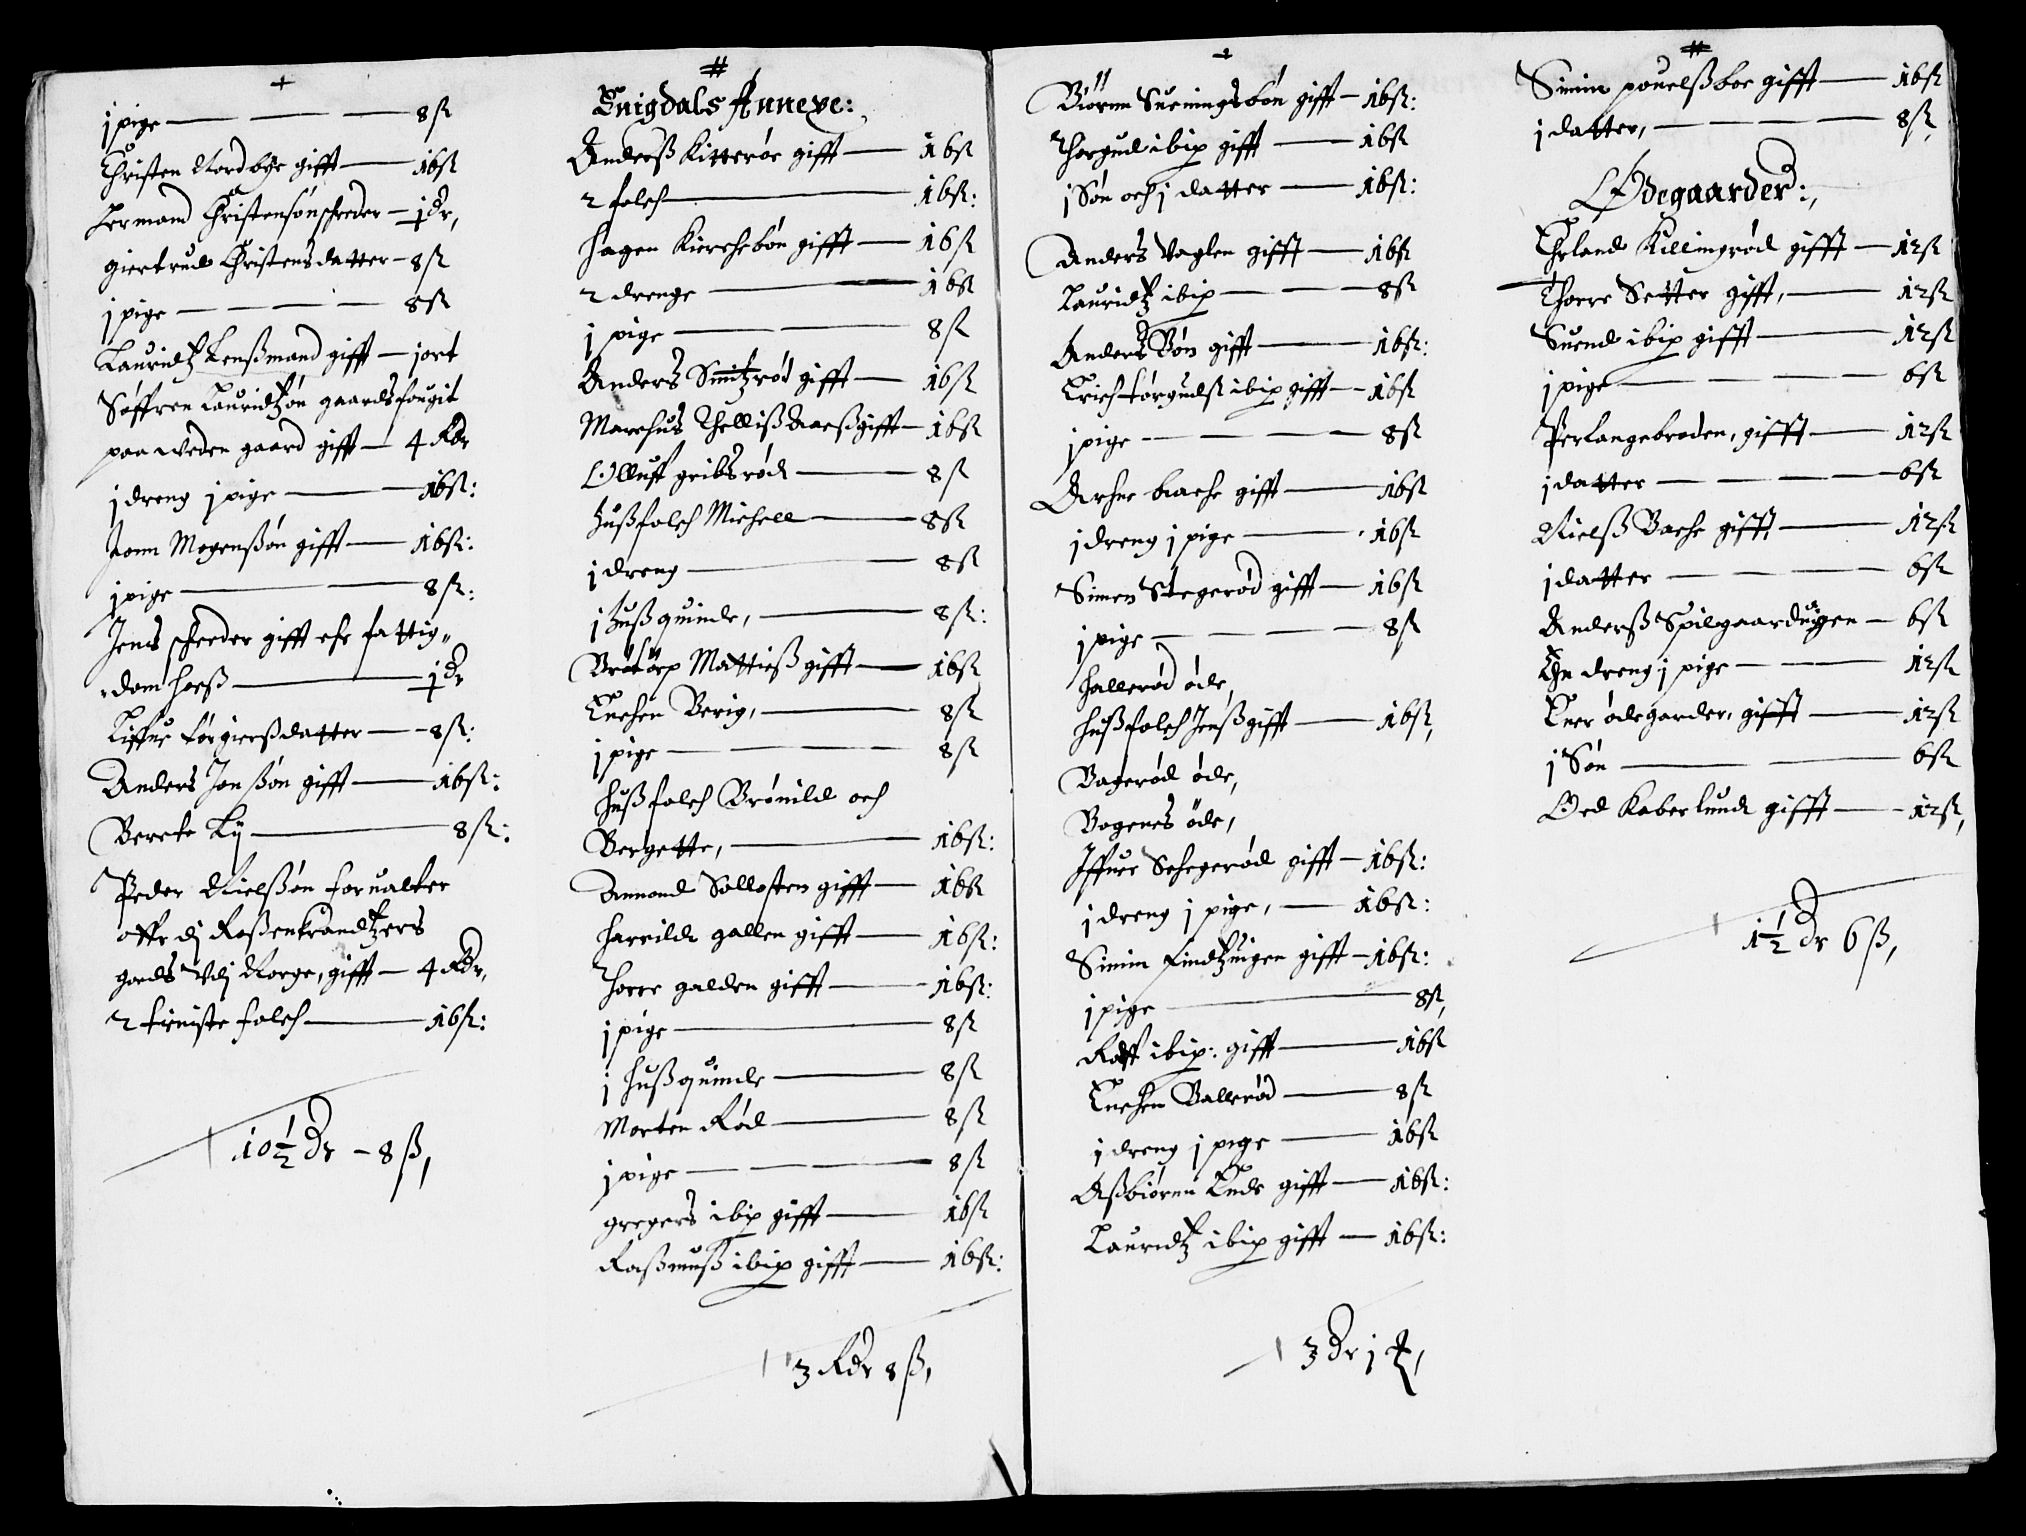 +
j pige — 8 ß
Christen Nordbye gifft — 16 ß
Hermand Christensøn schreder — j Dr,
Giertrud Christensdatter — 8 ß
j pige — 8 ß
Lauridtz Lenßmand gifft — j ort
Søffren Lauridtzøn gaardsfougit
paa Weden gaard gifft — 4 Rdr
j dreng j pige — 16 ß:
Jonn Mogenßøn gifft — 16 ß:
j pige — 8 ß:
Jens schreder gifft efr fattig„
„dom hoeß — j Dr
Liffue Torgierßdatter — 8 ß:
Anders Jonßøn gifft — 16 ß:
Berete Ly — 8 ß:
Peder Nielßøn forualter
offr dj Roßenkrandtzers
gods Vdj Norge, gifft — 4 Rdr,
2 tieniste folch — 16 ß:
10½ Dr – 8 ß,
#
Enigdals Annexe:,
Anderß Kitterøe gifft — 16 ß
2 folch — 16 ß:
Hagen Kierchebøn gifft — 16 ß
2 drenge — 16 ß
j pige — 8 ß
Anders Smitzrød gifft — 16 ß
Marchus Thelliß Aaeß gifft — 16 ß
Olluff gribsrød — 8 ß
Hußfolch Michell — 8 ß
j dreng — 8 ß
j Hußquinde, — 8 ß:
Brötörp Mattiß gifft — 16 ß
Enchen Berig, — 8 ß
j pige — 8 ß
Hußfolch Brönild och
Bergette, — 16 ß:
Amond Sollosten gifft — 16 ß
Harrild gallen gifft — 16 ß:
Thorre galden gifft — 16 ß:
j pige — 8 ß
j Hußquinde — 8 ß
Morten Rød — 8 ß
j pige — 8 ß
Gregers ibip gifft — 16 ß
Raßmuß ibip gifft — 16 ß:
3 Rdr 8 ß,
+
Biörnn Sueningsbøn gifft — 16 ß:
Thorgud ibip gifft — 16 ß
j Søn och j datter — 16 ß:
Anders Vaglen gifft — 16 ß
Lauridtz ibip — 8 ß
Anders Bøn gifft — 16 ß:
Erich Torgudß ibip gifft — 16 ß
j pige — 8 ß
Arhne bache gifft — 16 ß
j dreng j pige — 16 ß
Simen Stegerød gifft — 16 ß
j pige — 8 ß
Hallerød øde,
Hußfolch Jenß gifft — 16 ß,
Bagerød øde,
Bogenes øde,
Iffuer Schegerød gifft — 16 ß:
j dreng j pige, — 16 ß:
Simin Findtzuigen gifft — 16 ß:
j pige — 8 ß,
Roff ibip: gifft — 16 ß
Enchen Ballerød — 8 ß
j dreng j pige — 16 ß
Aßbiörnn Ende gifft — 16 ß:
Lauridtz ibip gifft — 16 ß:
3 Dr j
#
Simin pouelßboe gifft — 16 ß
j datter, — 8 ß,
Ødegaarder:,
Erland Killingrød gifft — 12 ß
Thorre Setter gifft, — 12 ß
Suend ibip gifft — 12 ß
j pige — 6 ß
Per Langebroden, gifft — 12 ß
j datter — 6 ß
Nielß Bache gifft — 12 ß
j datter — 6 ß
Anderß Spilgaarduigen — 6 ß
En dreng j pige — 12 ß
Euer ødegarder, gifft — 12 ß
j Søn — 6 ß
Ord Kaberlund gifft — 12 ß,
1½ Dr 6 ß,